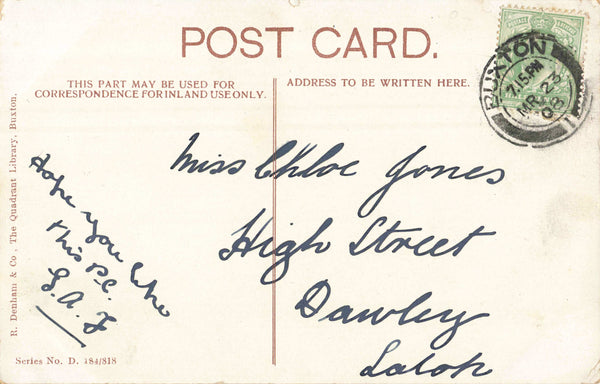 POST CARD.
THIS PART MAY BE USED FOR
CORRESPONDENCE FOR INLAND USE ONLY.
ADDRESS TO BE WRITTEN HERE.
BUXTON
7.15 PM
MR 23
08
Hope you like
this P.C.
S.A.F
Miss Chloe Jones
High Street
Dawley
Salop
R. Denham & Co, The Quadrant Library, Buxton.
Series No. D. 184/818